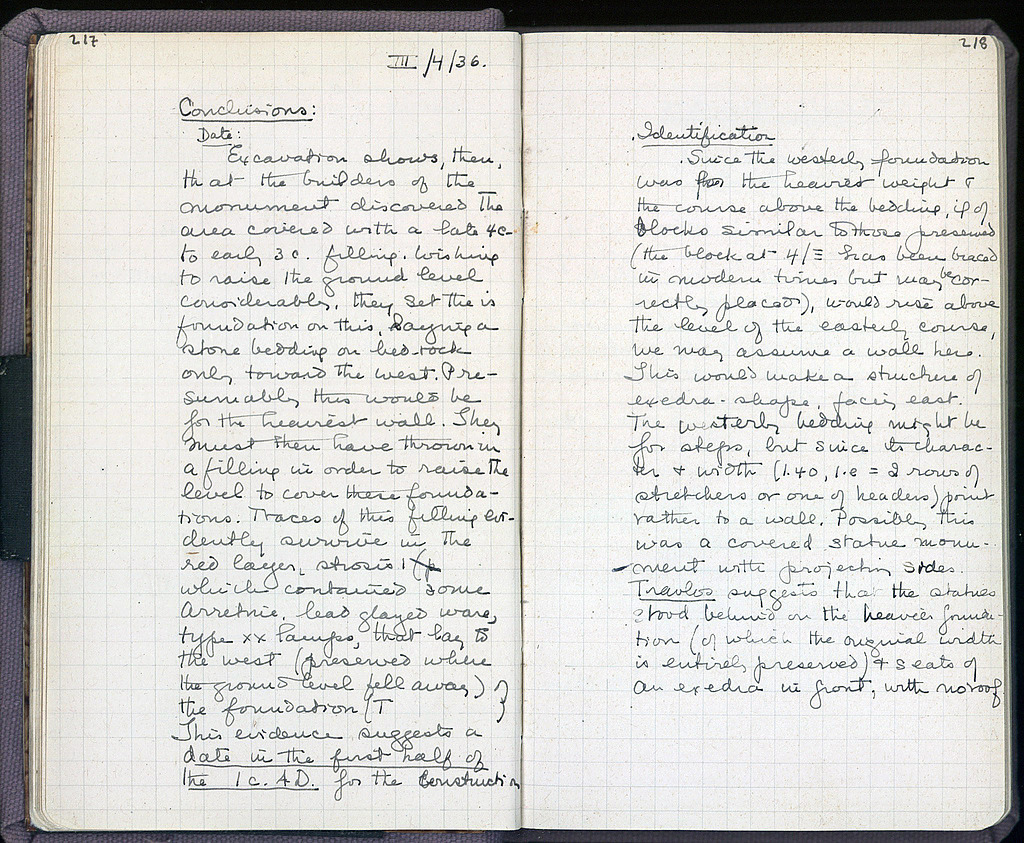 217
III/4/36.
Conclusions:
Date:
Excavation shows, then,
that the builders of the
monument discovered the
area covered with a late 4c-
to early 3 c. filling. Wishing
to raise the ground level
considerably, they set the
foundation on this, laying a
stone bedding on bed-rock
only toward the west. Pre-
sumably this would be
for the heaviest wall. They
must then have thrown in
a filling in order to raise the
level to cover these founda-
tions. Traces of this filling evi-
dently survive in the
red layer, strosis 1
which contained some
Arretine, lead glazed ware,
type xx lamps, that lay to
the west (preserved where
the ground level fell away) of
the foundation
This evidence suggests a
date in the first half of
the 1 c. A.D. for the construction
218
Identification
Since the westerly foundation
was for the heaviest weight &
the course above the bedding, if of
blocks similar to those preserved
(the block at 4/Ξ has been placed
in modern times but may be cor-
rectly placed), would rise above
the level of the easterly course,
we may assume a wall here.
This would make a structure of
exedra-shape, facing east.
The westerly bedding might be
for steps, but since its charac-
ter & width (1.40, i.e = 2 rows of
stretchers or one of headers) point
rather to a wall. Possibly this
was a covered statue monu-
ment with projecting sides.
Travlos suggests that the statues
stood behind on the heavier founda-
tion (of which the original width
is entirely preserved) & seats of
an exedra in front, with no roof